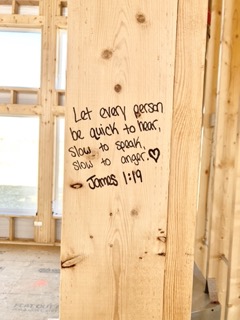 Let every person
be quick to hear,
slow to speak,
slow to anger.♡
James 1:19